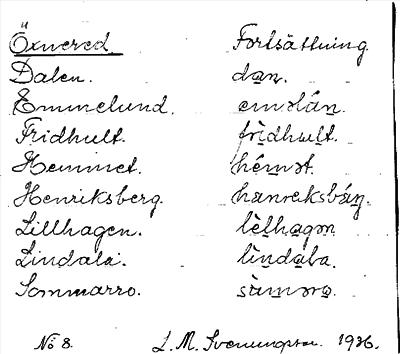 Öxnered. Fortsättning.
Dalen. dan.
Emmelund. eməlán.
Fridhult. frìdhult.
Hemmet. hémət.
Henriksberg. hanreksbáŋ.
Lillhagen. lèlhagən.
Lindala. lìndaba.
Sommarro. sùmərə.
No 8. L. M. Svenungsson. 1936.